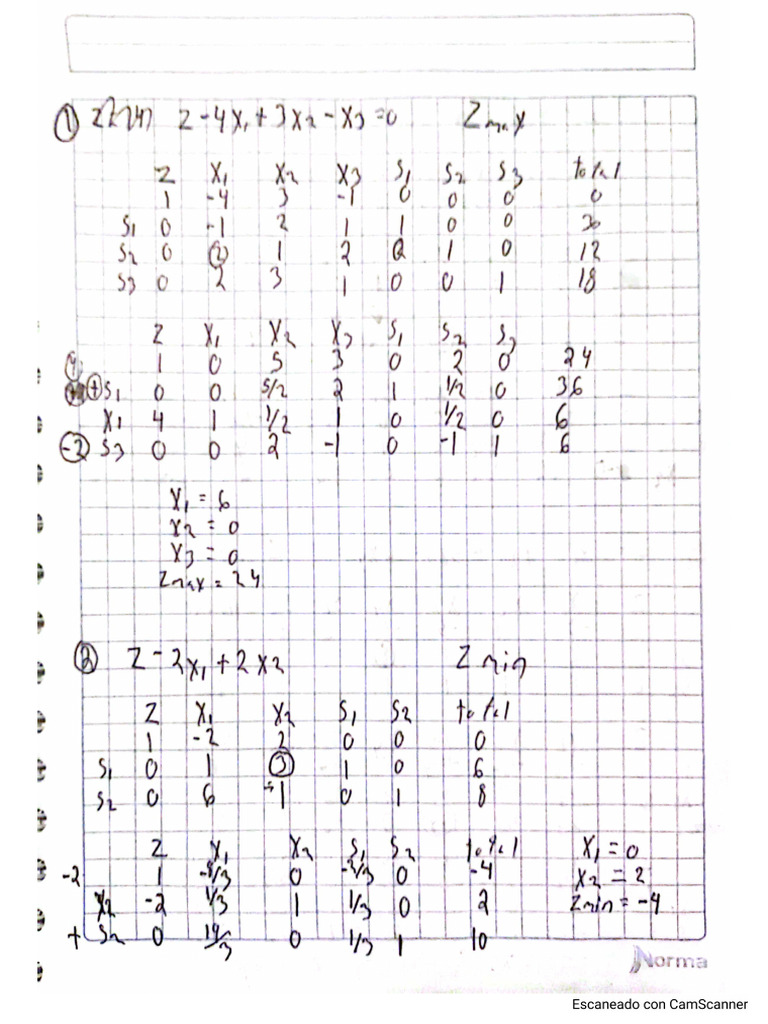 ① Z - 4X₁ + 3X₂ - X₃ = 0 Zmax
Z X₁ X₂ X₃ S₁ S₂ S₃ total
1 -4 3 -1 0 0 0 0
S₁ 0 -1 2 1 1 0 0 30
S₂ 0 ② 1 2 0 1 0 12
S₃ 0 2 3 1 0 0 1 18
Z X₁ X₂ X₃ S₁ S₂ S₃
4 1 0 5 3 0 2 0 24
+ S₁ 0 0 5/2 2 1 1/2 0 36
X₁ 4 1 1/2 1 0 1/2 0 6
-2 S₃ 0 0 2 -1 0 -1 1 6
X₁ = 6
X₂ = 0
X₃ = 0
Zmax = 24
② Z - 2X₁ + 2X₂ Zmin
Z X₁ X₂ S₁ S₂ total
1 -2 2 0 0 0
S₁ 0 1 ③ 1 0 6
S₂ 0 6 -1 0 1 8
Z X₁ X₂ S₁ S₂ total X₁ = 0
-2 1 -8/3 0 -2/3 0 -4 X₂ = 2
X₂ -2 1/3 1 1/3 0 2 Zmin = -4
+ S₂ 0 19/3 0 1/3 1 10
Norma
Escaneado con CamScanner